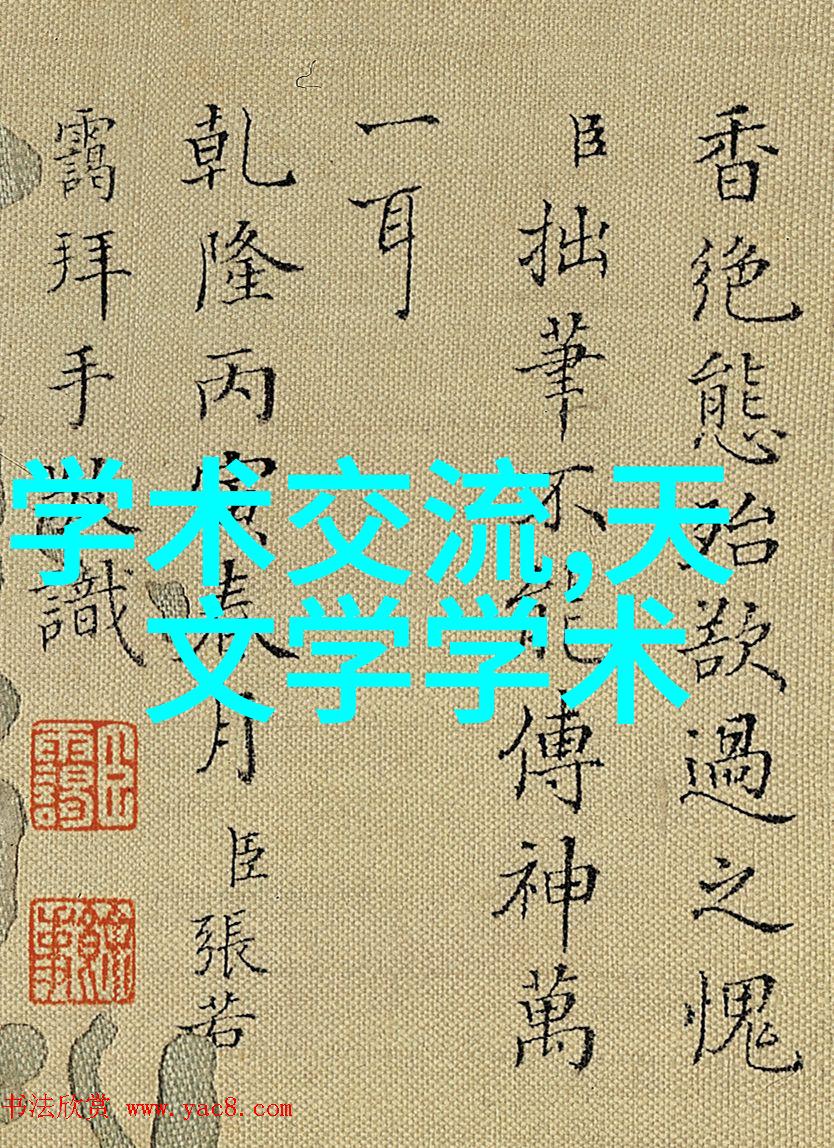 香絶態殆欲過之愧
臣拙筆不能傳神萬
一耳
乾隆丙寅月臣張若
靄拜手敬識
学术交流,天
文学学术
书法欣赏 www.yac8.com